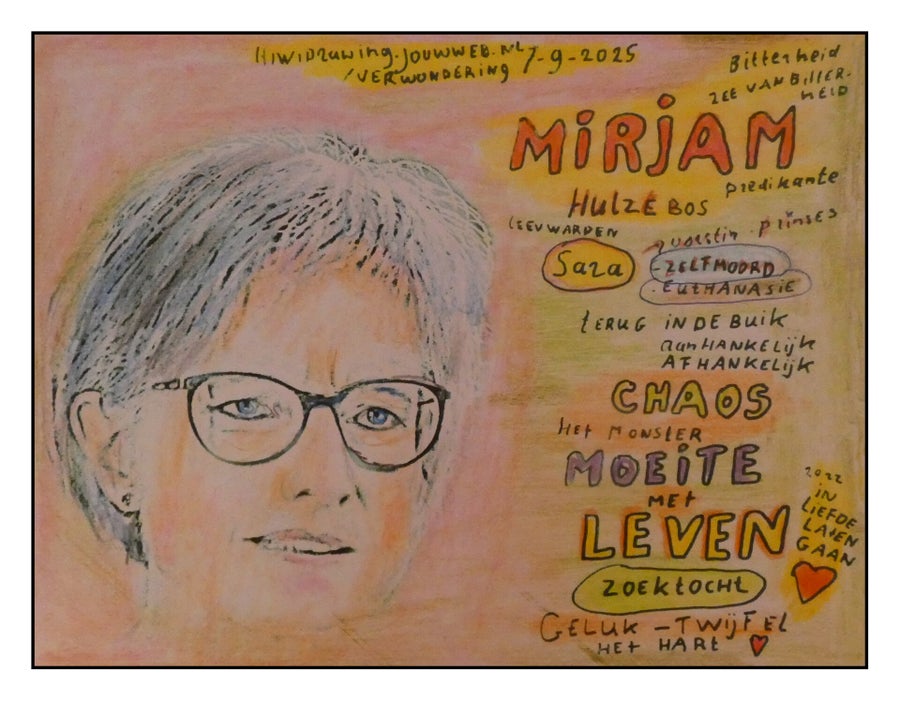 HIWIDRAWING.JOUWWEB.NL 7-9-2025
/VERWONDERING
Bitterheid
ZEE VAN BITTER-
HEID
MIRJAM
predikante
HULZEBOS
LEEUWARDEN
prinses
Sara
-ZELFMOORD
.EUTHANASIE
TERUG IN DE BUIK
aanHANKELIJK
AFHANKELIJK
CHAOS
HET MONSTER
MOEITE
MET
LEVEN
2022
IN
LIEFDE
LATEN
GAAN
ZOEKTOCHT
GELUK - TWIJFEL
HET HART